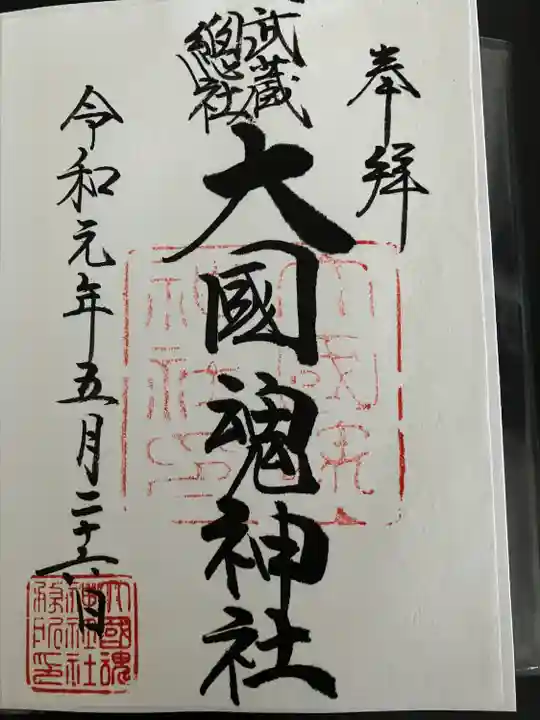 奉拝
武蔵
總社
大國魂神社
令和元年五月二十六日
大國魂
神社
務所印